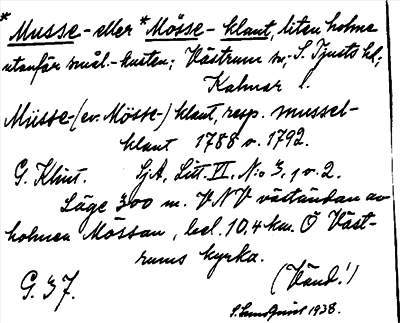 *Musse- eller *Mösse-klaut, liten holme
utanför smål.-kusten; Västrum sn; S. Tjusts hd;
Kalmar l.
Müsse-(ev. Mösse-) klaut, resp. mussel-
klaut 1788 o. 1792.
G. Klint. SjA, Litt. II. N:o 3, 1 o. 2.
Läge 300 m. VNV väständan av
holmen Mössan, bel. 10,4 km. Ö Väst-
rums kyrka.
G. 37. (Vänd!)
S. Lundquist 1938.